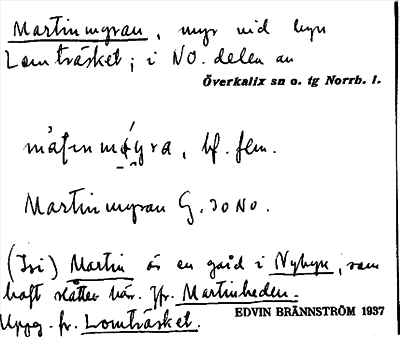 Martinmyran, myr vid byn
Lomträsket; i NO. delen av
Överkalix sn o. tg Norrb. l.
bf. fem.
Martinmyran G. 30 NO.
(I vi) Martin är en gård i Nybyn, som
haft slåtter här. Jfr. Martinheden.
Uppg. fr. Lomträsket.
EDVIN BRÄNNSTRÖM 1937